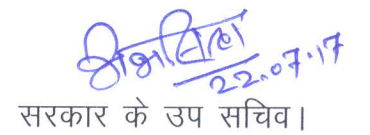 22.07.17
सरकार के उप सचिव।